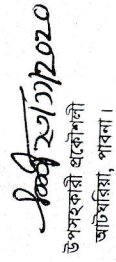 ২৫/১১/২০২০
উপসহকারী প্রকৌশলী
আটঘরিয়া, পাবনা।